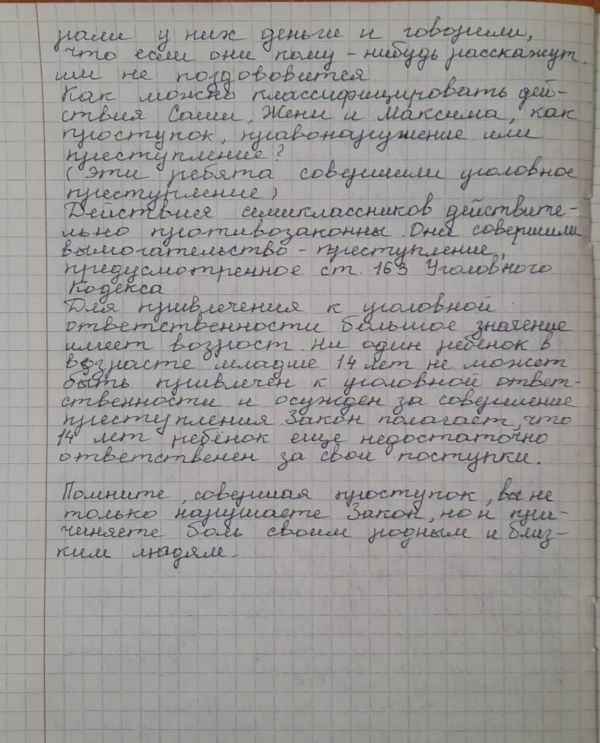 рали у них деньги и говорили,
что если они кому-нибудь расскажут
им не поздоровится
Как можно классифицировать дей-
ствия Саши, Жени и Максима, как
проступок, правонарушение или
преступление?
(Эти ребята совершили уголовное
преступление)
Действия семиклассников действите-
льно противозаконны. Они совершили
вымогательство - преступление,
предусмотренное ст. 163 Уголовного
Кодекса
Для привлечения к уголовной
ответственности большое значение
имеет возраст. Ни один ребенок в
возрасте младше 14 лет не может
быть привлечен к уголовной ответ-
ственности и осужден за совершение
преступления. Закон полагает, что
14 лет ребёнок еще недостаточно
ответственен за свои поступки.
Помните, совершая проступок, вы не
только нарушаете Закон, но и при-
чиняете боль своим родным и близ-
ким людям.